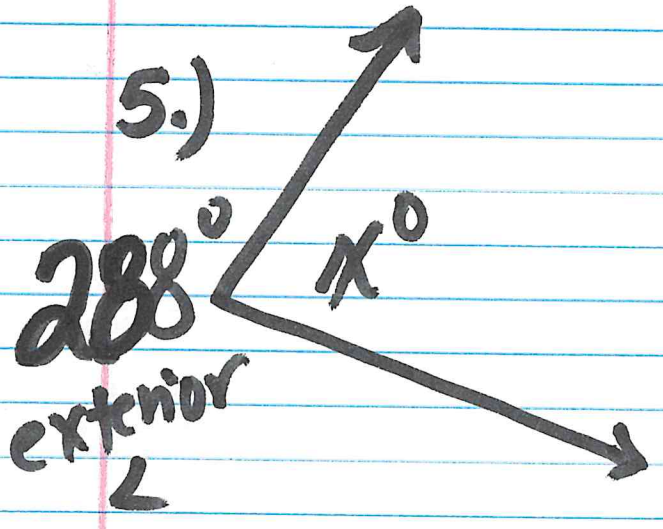 5.)
288°
x°
exterior
<